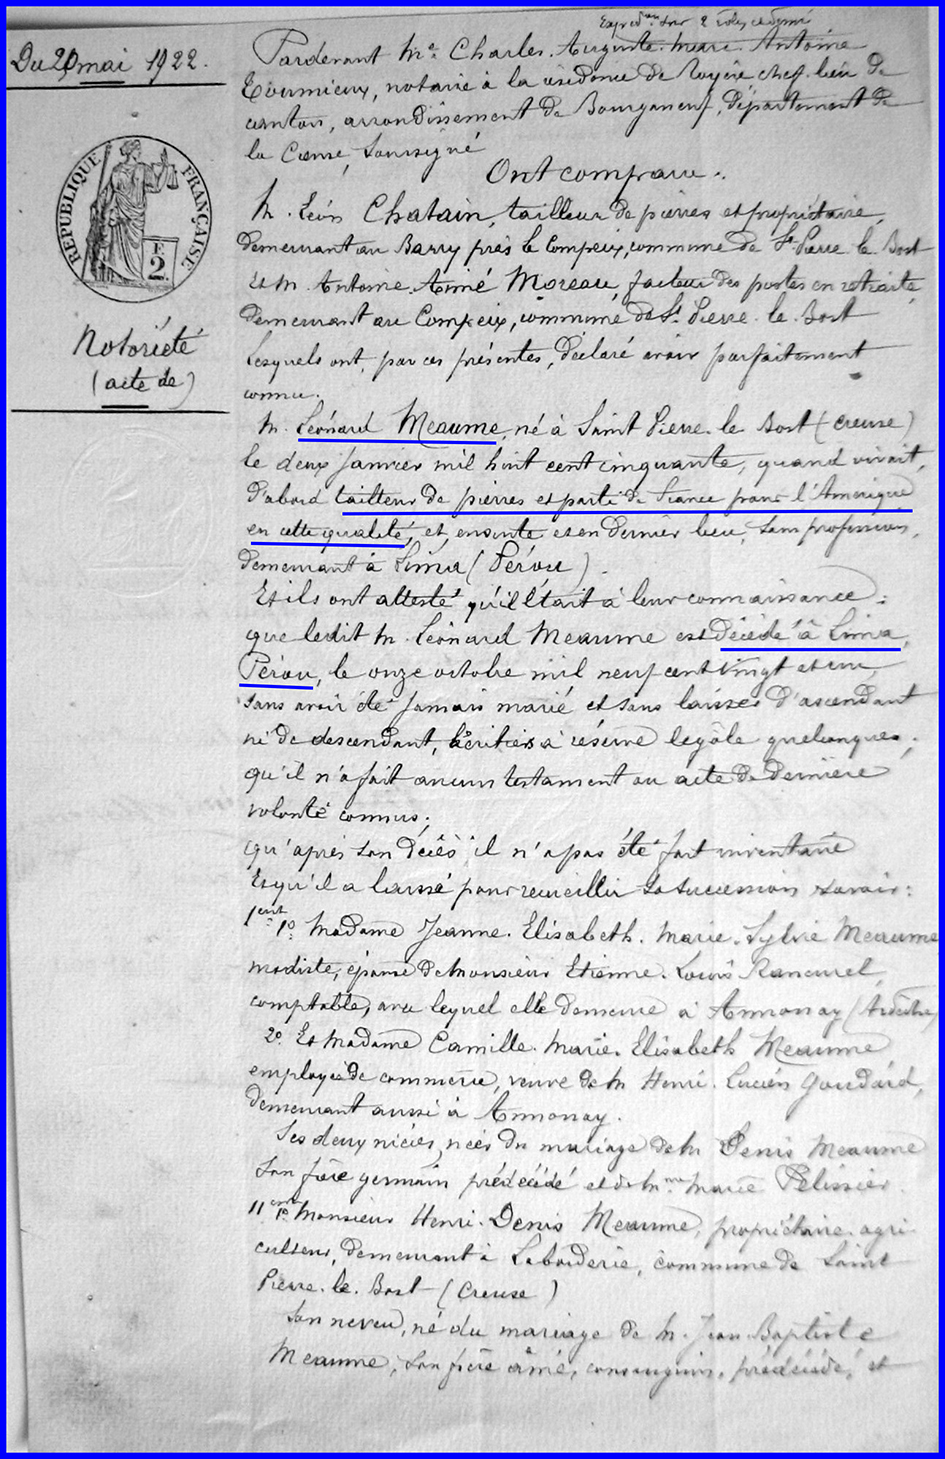 Du 20 mai 1922.
Expéd.on sur 2 rôles et demi
Pardevant Me Charles. Auguste. Marc. Antoine
Tournieux, notaire à la résidence de Royère chef-lieu de
canton, arrondissement de Bourganeuf, département de
la Creuse, soussigné
Ont comparu.
RÉPUBLIQUE FRANÇAISE
2 F
Notoriété
(acte de)
M. Léon Chatain, tailleur de pierres et propriétaire,
demeurant au Barry près le Compeix, commune de St Pierre le Bost
Et M. Antoine. Aimé Moreau, facteur des postes en retraite
demeurant au Compeix, commune de St Pierre. le. Bost
Lesquels ont, par ces présentes, déclaré avoir parfaitement
connu.
M. Léonard Meaume, né à Saint Pierre. le Bost (Creuse)
le deux janvier mil huit cent cinquante, quand vivait,
d'abord tailleur de pierres et parti de France pour l'Amérique
en cette qualité, et ensuite et en dernier lieu, sans profession,
demeurant à Lima (Pérou).
Et ils ont attesté qu'il était à leur connaissance:
que ledit M. Léonard Meaume est décédé à Lima,
Pérou, le onze octobre mil neuf cent vingt et un,
sans avoir été jamais marié et sans laisser d'ascendant
ni de descendant, héritiers à réserve légale quelconques;
qu'il n'a fait aucun testament ou acte de dernière
volonté connus;
Qu'après son décès il n'a pas été fait inventaire
Et qu'il a laissé pour recueillir sa succession savoir:
1ent 1o Madame Jeanne. Elisabeth. Marie. Sylvie Meaume
modiste, épouse de Monsieur Etienne. Louis Rancurel,
comptable, avec lequel elle demeure à Annonay (Ardèche)
2o Et Madame Camille. Marie. Elisabeth Meaume
employée de commerce, veuve de M. Henri. Lucien Goudard,
demeurant aussi à Annonay.
Ses deux nièces, nées du mariage de M. Denis Meaume
son frère germain prédécédé et de Mme Marie Pélissier.
11ent 1o Monsieur Henri. Denis Meaume, propriétaire agri-
culteur, demeurant à Laborderie, commune de Saint
Pierre. le. Bost (Creuse)
Son neveu, né du mariage de M. Jean. Baptiste
Meaume, son frère aîné, consanguin, prédécédé, et